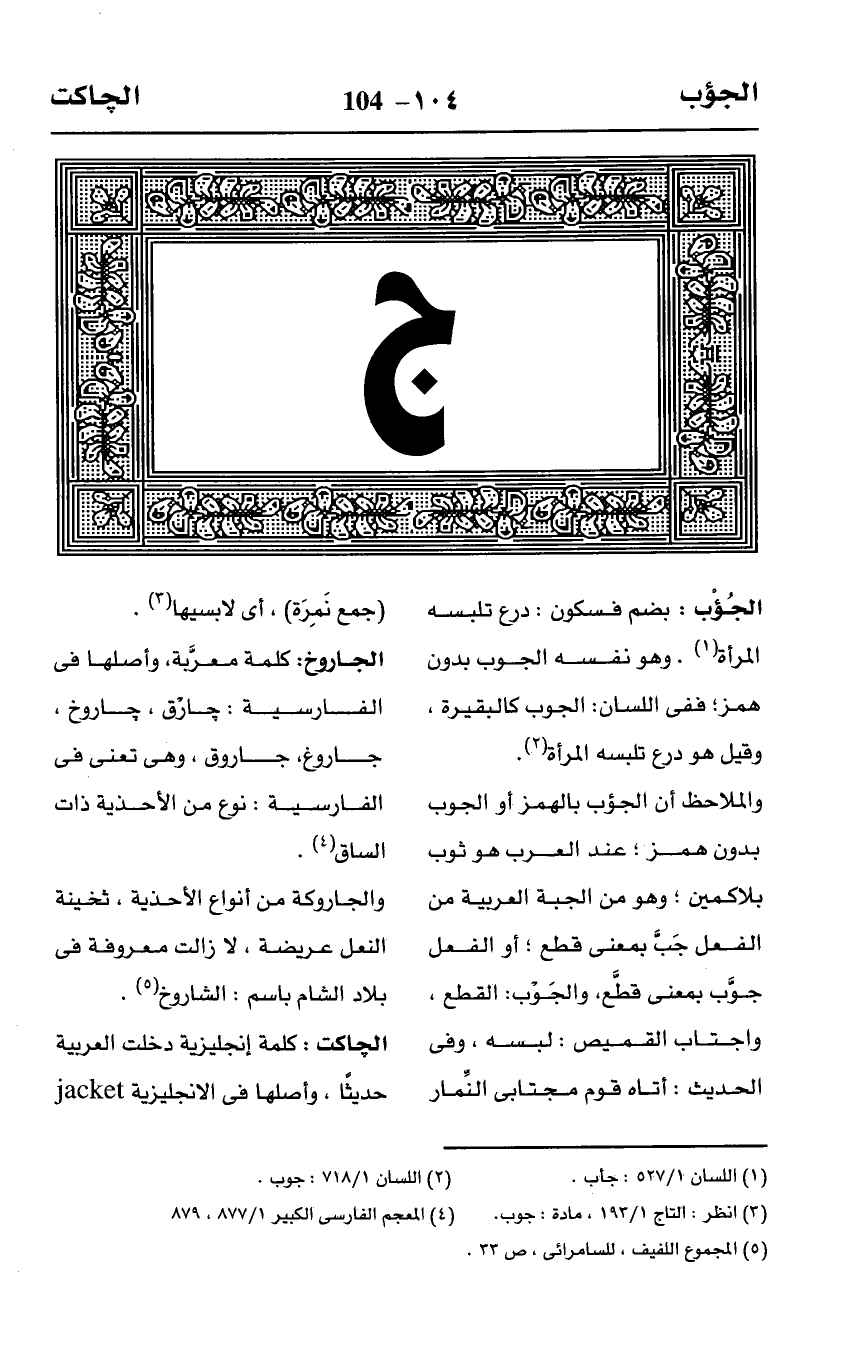 الجؤب
١٠٤ - 104
الچاكت
ج
الجُؤْب : بضم فسكون : درع تلبسه
المرأة(١) . وهو نفسه الجوب بدون
همز؛ ففى اللسان: الجوب كالبقيرة ،
وقيل هو درع تلبسه المرأة(٢).
والملاحظ أن الجؤب بالهمز أو الجوب
بدون همز ؛ عند العرب هو ثوب
بلاكمين ؛ وهو من الجبة العربية من
الفعل جَبَّ بمعنى قطع ؛ أو الفعل
جوَّب بمعنى قطَّع، والجَوْب: القطع ،
واجتاب القميص : لبسه ، وفى
الحديث : أتاه قوم مجتابى النِّمار
(جمع نَمِرَة) ، أى لابسيها(٣) .
الجاروخ: كلمة معرَّبة، وأصلها فى
الفارسية : چارْق ، چاروخ ،
جاروغ، جاروق ، وهى تعنى فى
الفارسية : نوع من الأحذية ذات
الساق(٤) .
والجاروكة من أنواع الأحذية ، ثخينة
النعل عريضة ، لا زالت معروفة فى
بلاد الشام باسم : الشاروخ(٥) .
الچاكت : كلمة إنجليزية دخلت العربية
حديثًا ، وأصلها فى الانجليزية jacket
(١) اللسان ٥٢٧/١ : جأب .
(٢) اللسان ٧١٨/١ : جوب .
(٣) انظر : التاج ١٩٣/١ ، مادة : جوب.
(٤) المعجم الفارسى الكبير ٨٧٧/١ ، ٨٧٩
(٥) المجموع اللفيف ، للسامرائى ، ص ٣٣ .